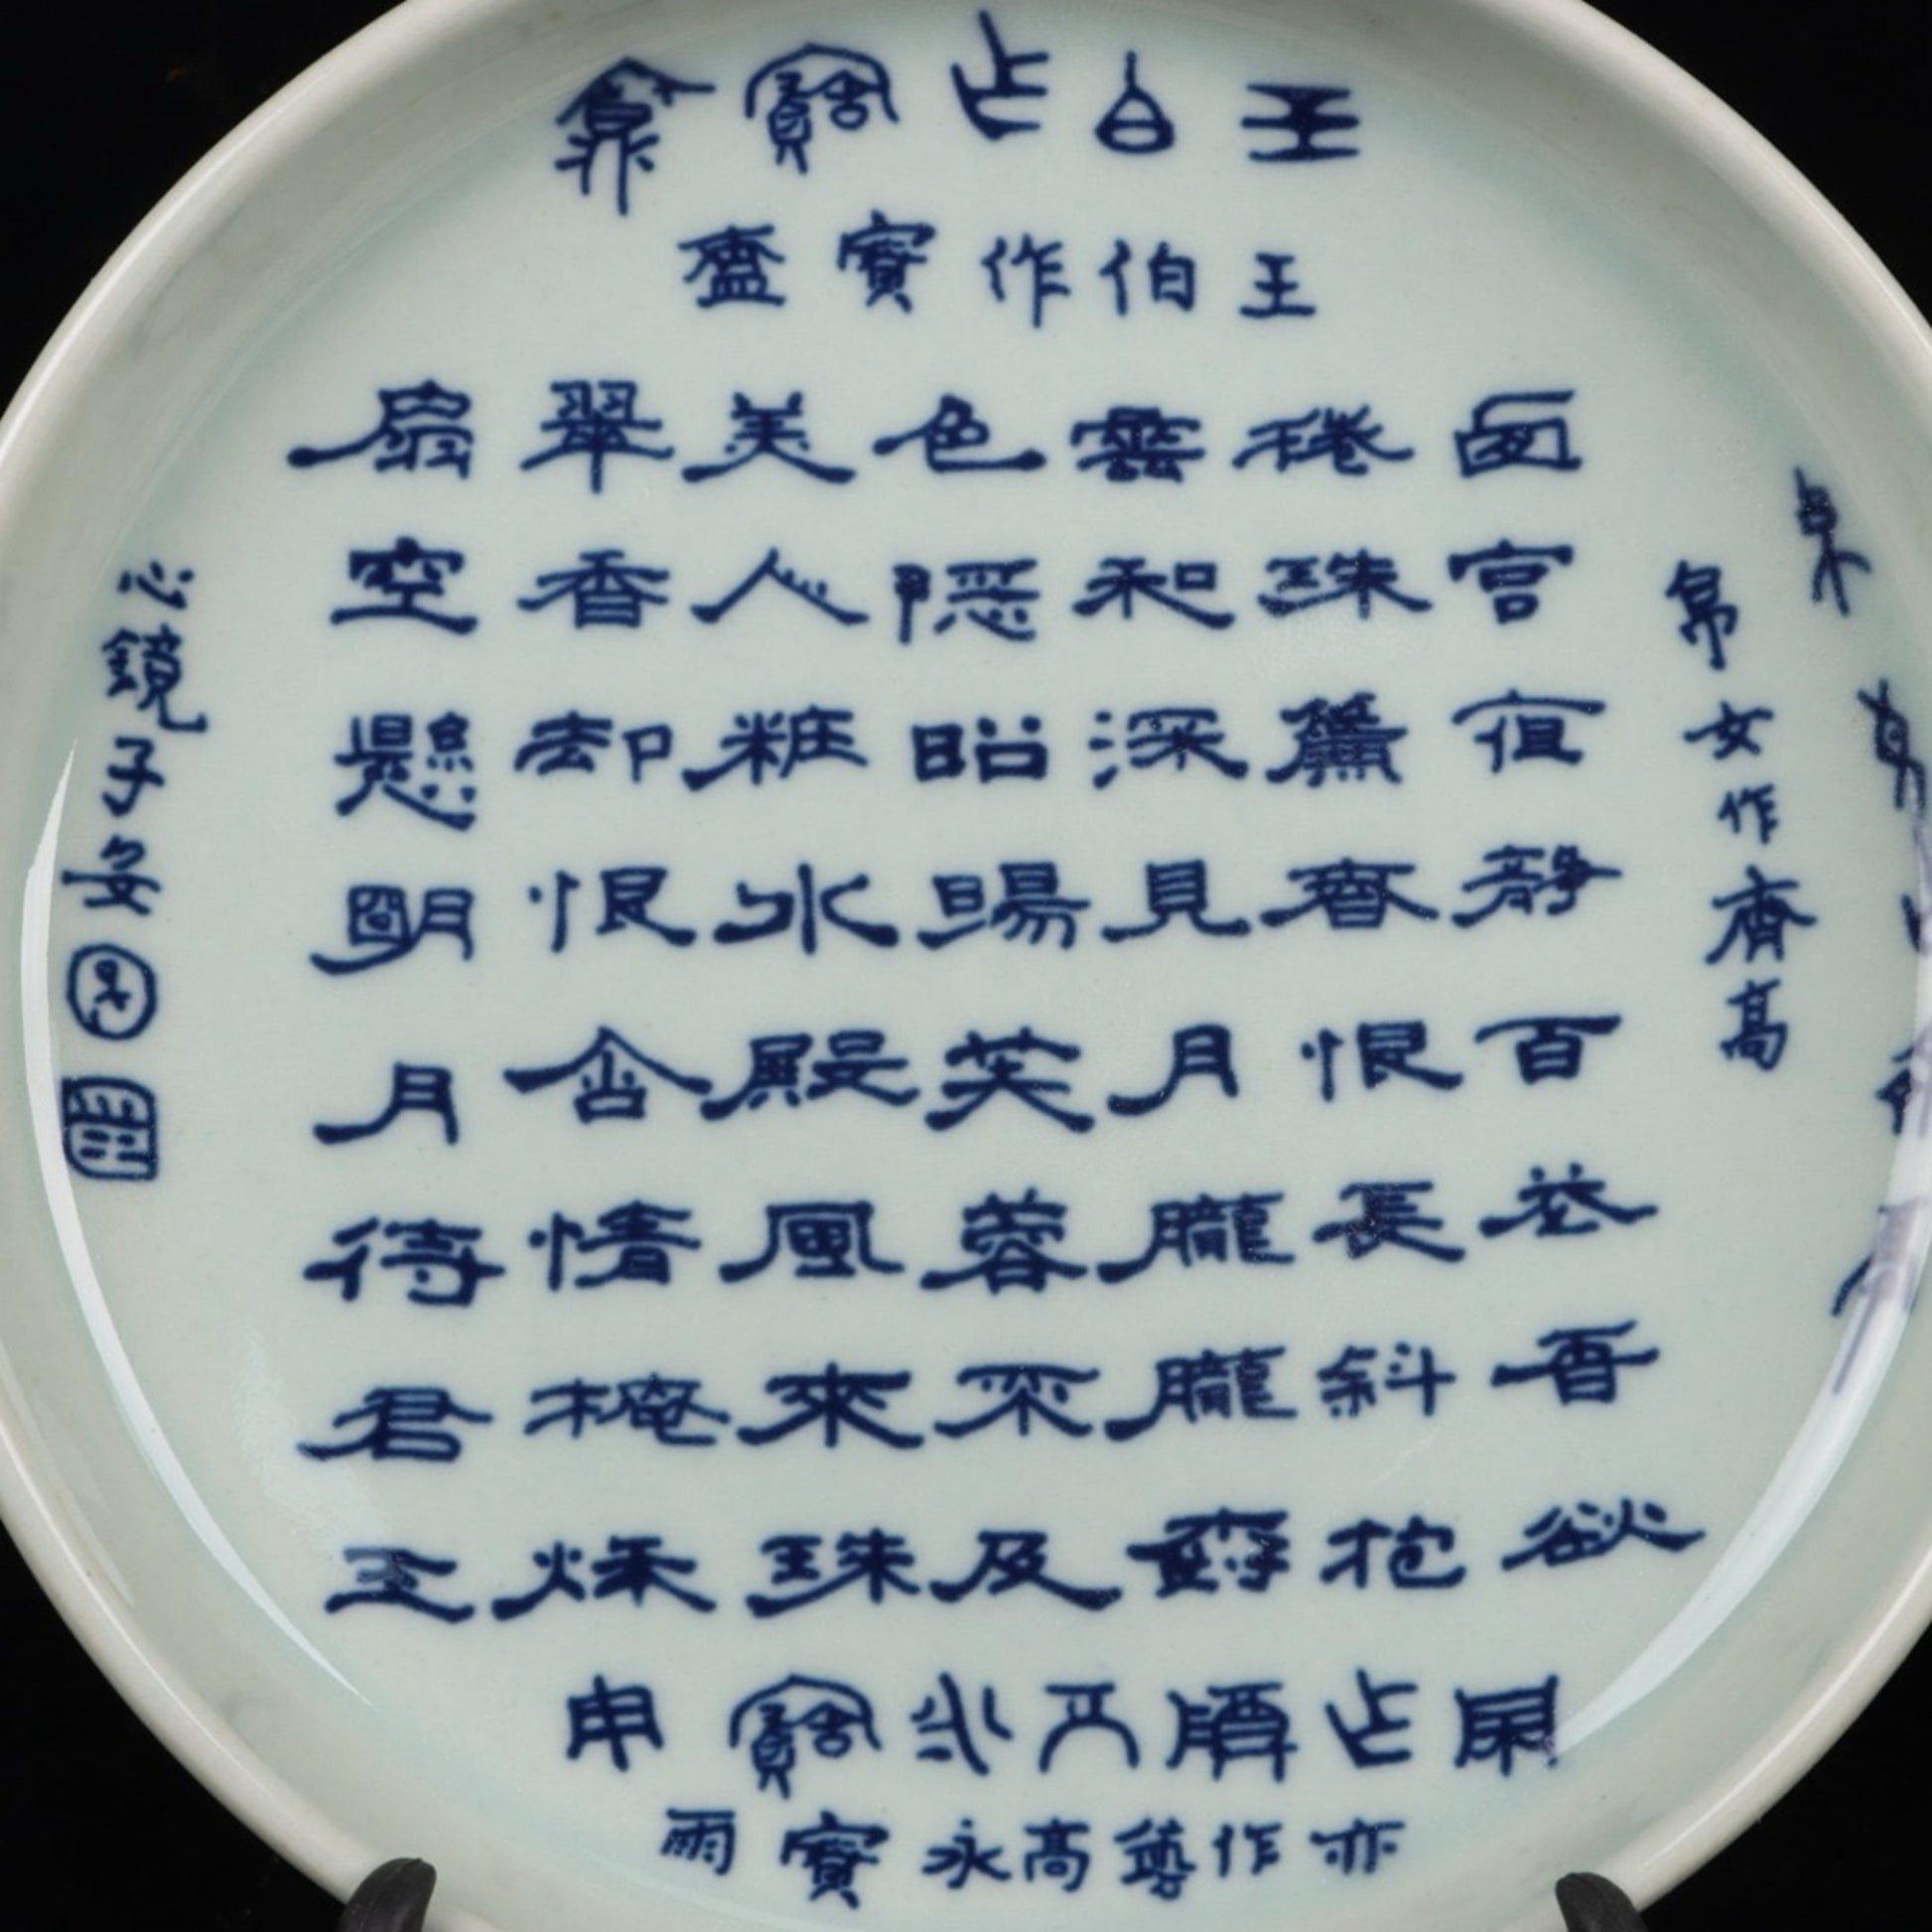 王白乍寶
王伯作寶
帛女作齊高
西宮夜靜百花香欲
捲珠簾春恨長斜抱
雲和深見月朧朧樹
色隱昭陽芙蓉不及
美人粧水殿風來珠
翠香却恨含情掩秋
扇空懸明月待君王
亦作高永寶雨
心鏡子安